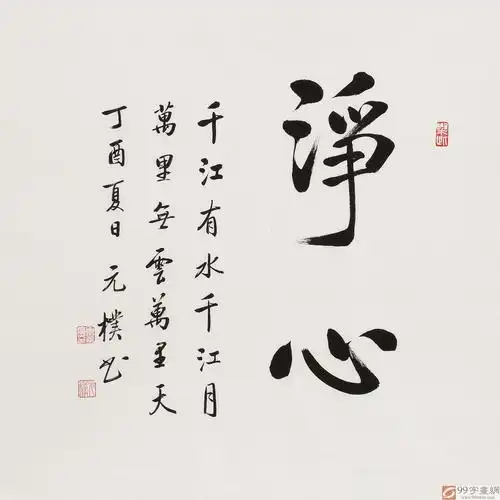 淨心
千江有水千江月
萬里無雲萬里天
丁酉夏日 元樸书
99字畫網